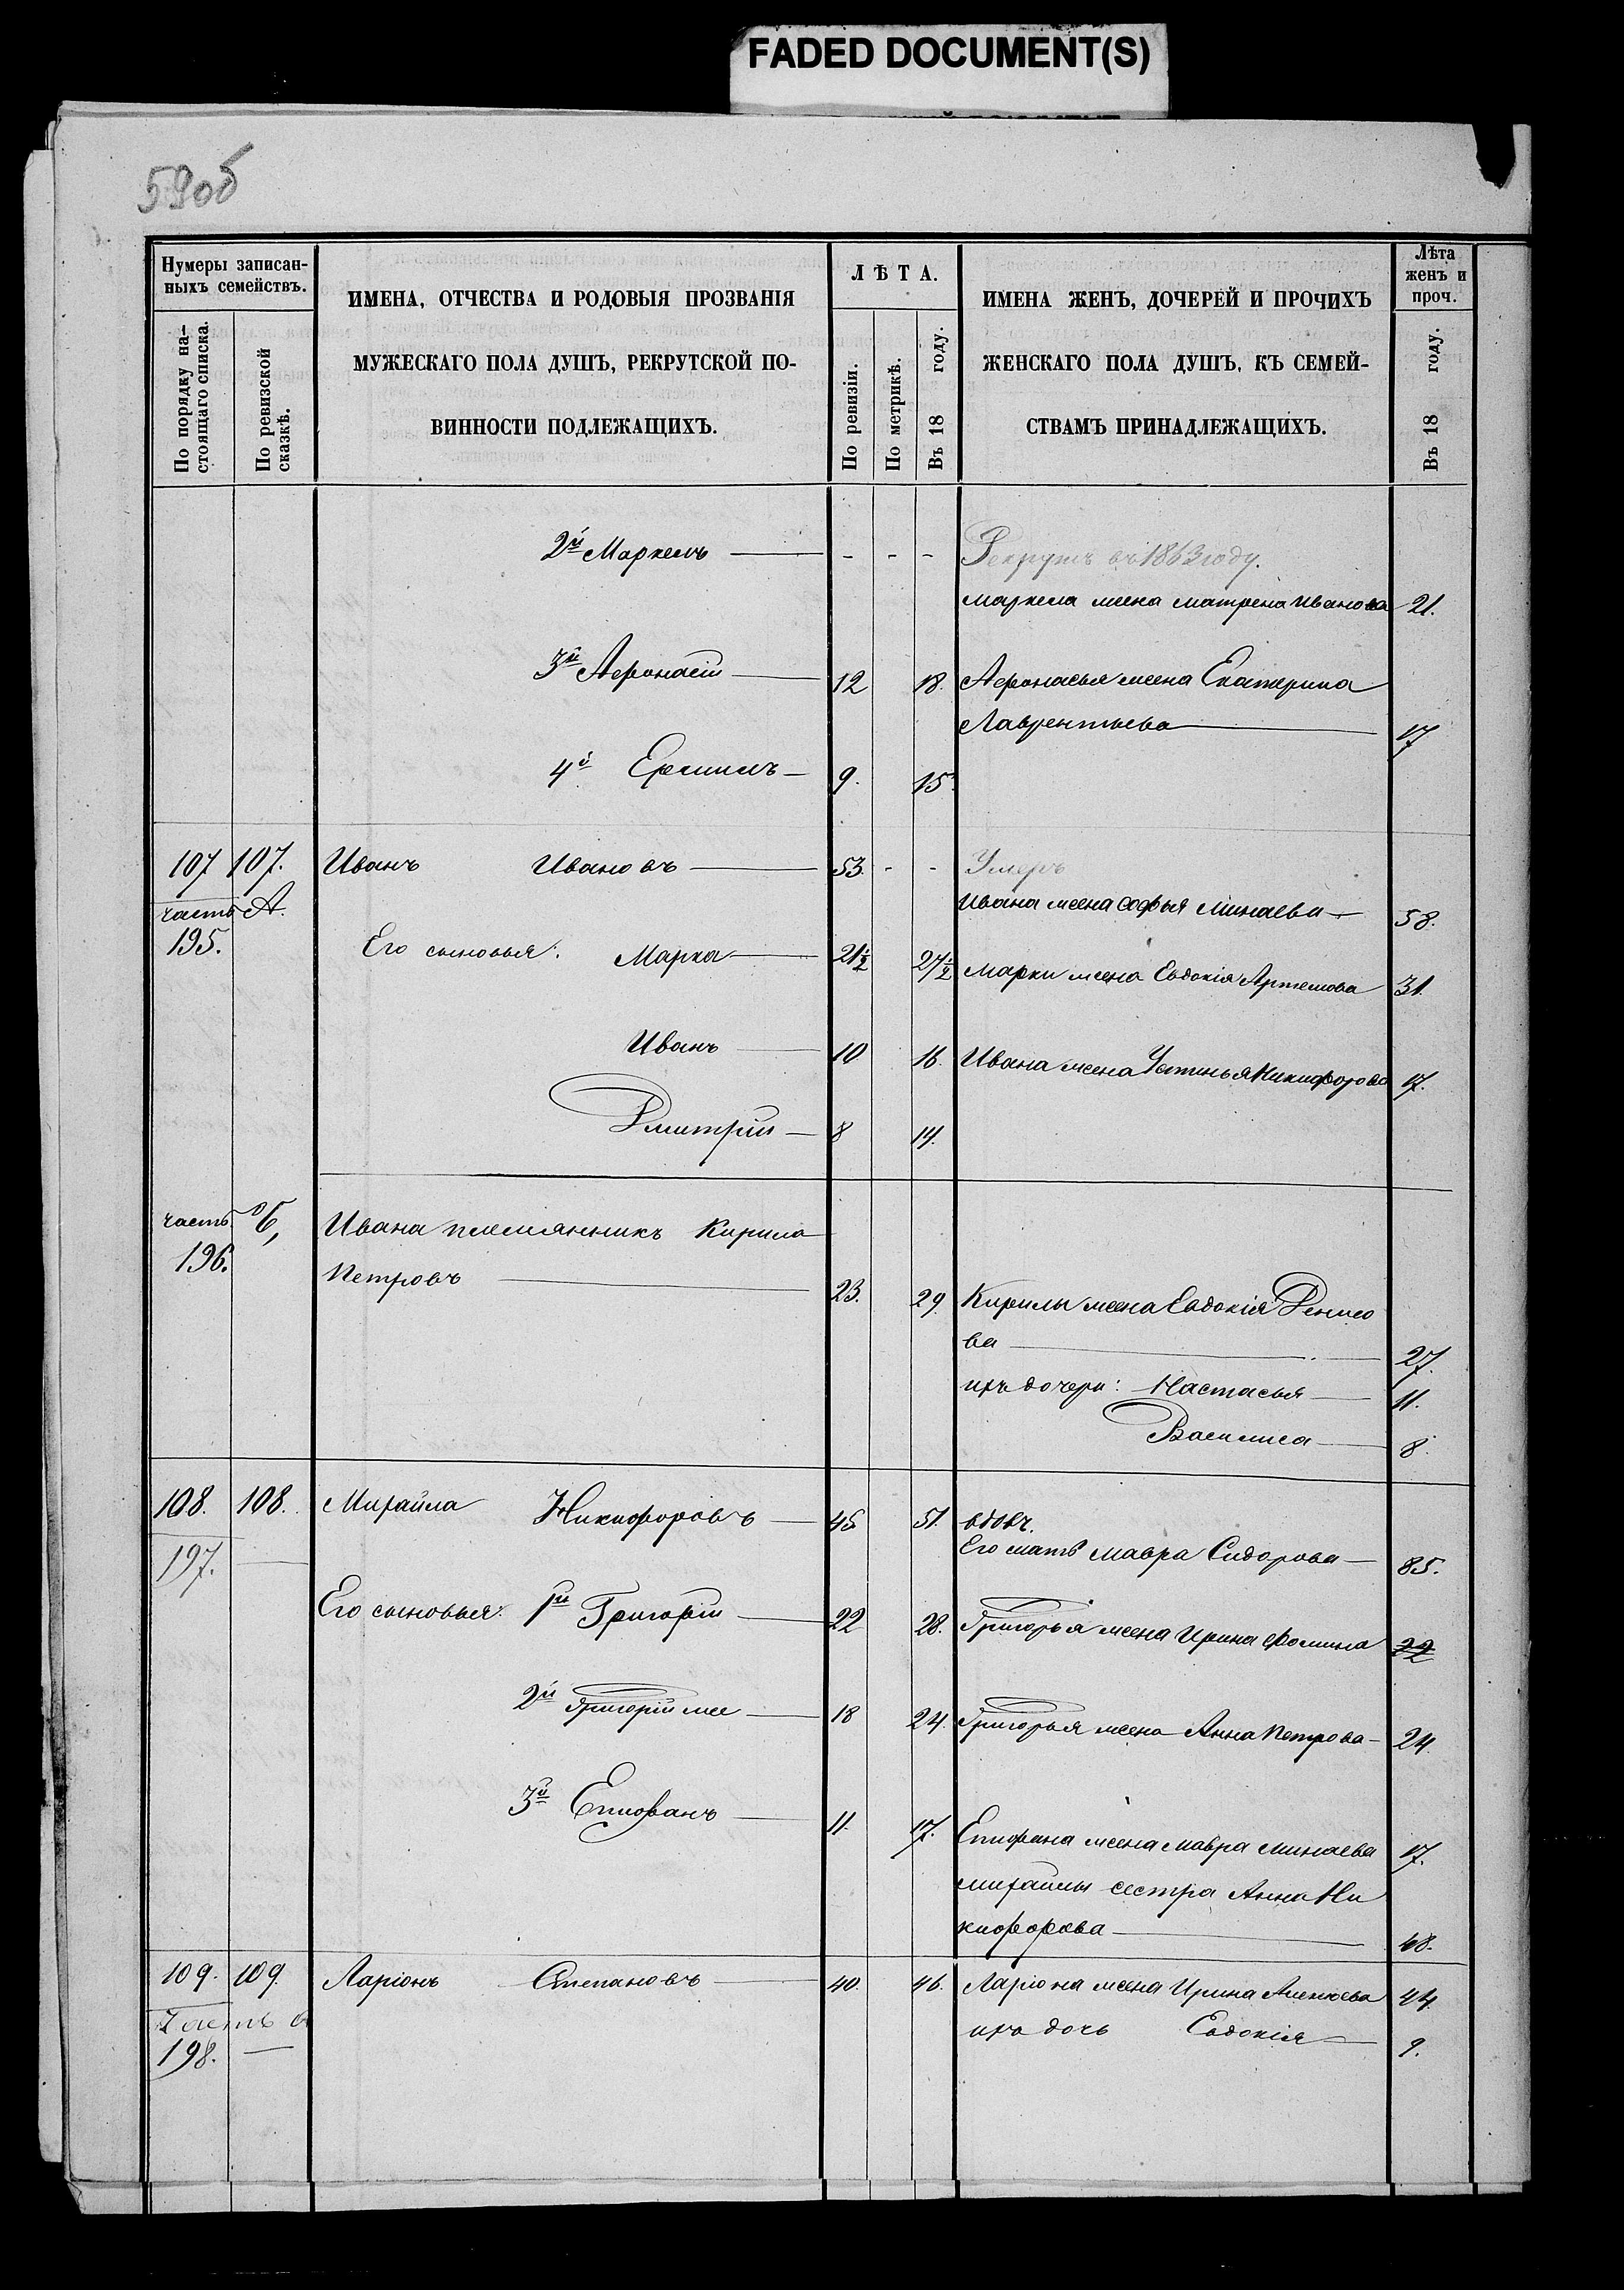 FADED DOCUMENT(S)
59об
Нумеры записан-
ныхъ семействъ.
По порядку на-
стоящаго списка.
По ревизской
сказкѣ.
ИМЕНА, ОТЧЕСТВА И РОДОВЫЯ ПРОЗВАНІЯ
МУЖЕСКАГО ПОЛА ДУШЪ, РЕКРУТСКОЙ ПО-
ВИННОСТИ ПОДЛЕЖАЩИХЪ.
ЛѢТА.
По ревизіи.
По метрикѣ.
Въ 18 году.
ИМЕНА ЖЕНЪ, ДОЧЕРЕЙ И ПРОЧИХЪ
ЖЕНСКАГО ПОЛА ДУШЪ, КЪ СЕМЕЙ-
СТВАМЪ ПРИНАДЛЕЖАЩИХЪ.
Лѣта
женъ и
проч.
Въ 18 году.
2й Маркелъ — - - - Рекрутъ въ 1863 году.
Маркела жена Матрена Иванова 21.
3й Афонасій — 12 18. Афонасья жена Екатерина
Лаврентьева — 17
4й Ермилъ — 9. 15.
107 107. Иванъ Ивановъ — 53. - - Умеръ
часть А. Ивана жена Софья Минаева — 58.
195. Его сыновья: Марка — 21½ 27½ Марки жена Евдокія Артемова 31.
Иванъ — 10 16. Ивана жена Устинья Никифорова 17.
Дмитрій — 8 14.
часть б, Ивана племянникъ Кирила
196. Петровъ — 23. 29. Кирилы жена Евдокія Денисо
ва — 27.
ихъ дочери: Настасья — 11.
Василиса — 8.
108. 108. Михайла Никифоровъ — 45 51. вдовъ.
197. — Его мать Мавра Сидорова — 85.
Его сыновья: 1й Григорій — 22 28. Григорья жена Ирина Фомина 22
2й Григорій же — 18 24. Григорья жена Анна Петрова — 24.
3й Епифанъ — 11. 17. Епифана жена Мавра Минаева 17.
Михайлы сестра Анна Ни
кифорова — 48.
109. 109. Ларіонъ Степановъ — 40. 46. Ларіона жена Ирина 44.
Часть
198. — ихъ дочь Евдокія — 9.